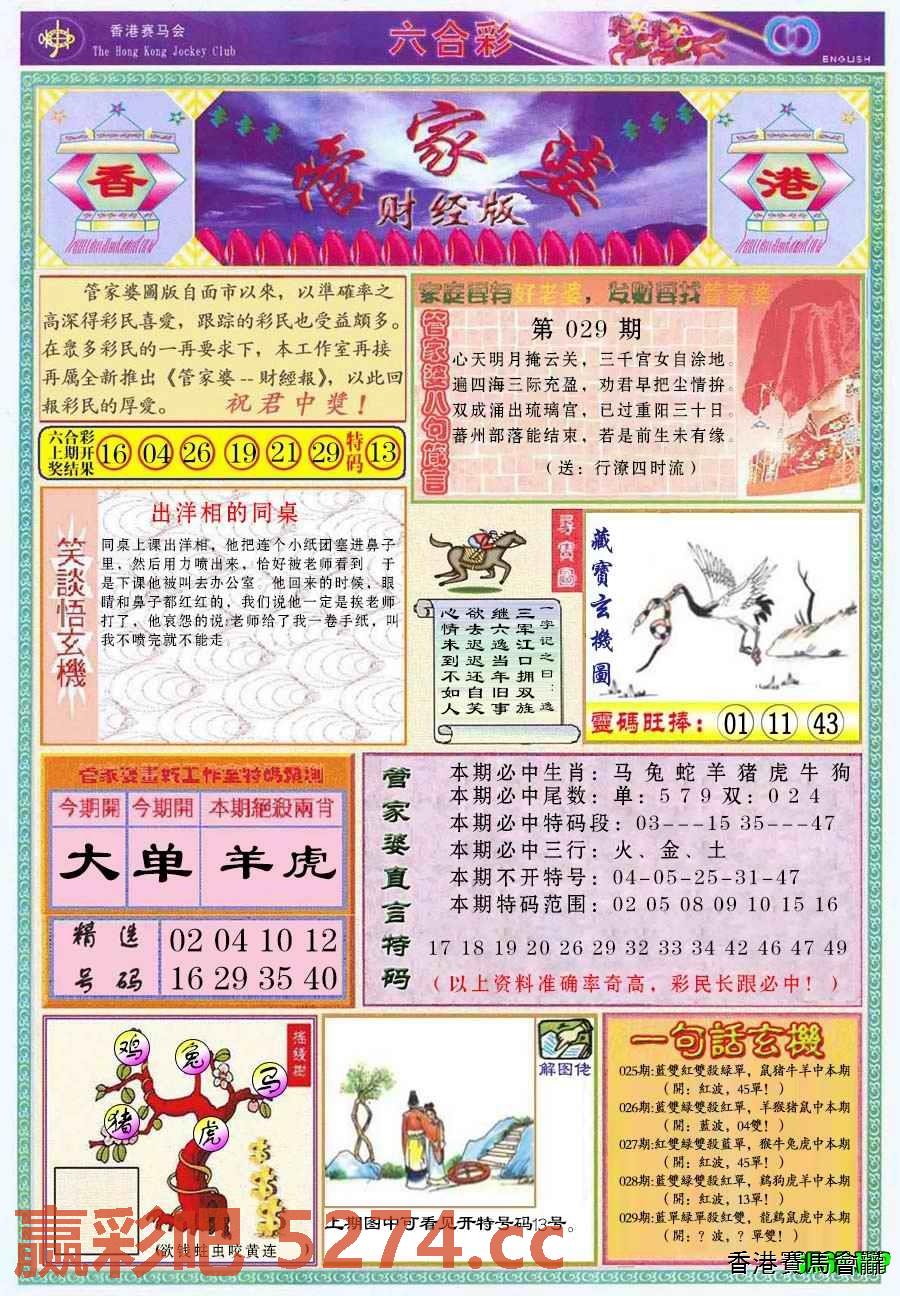 香港赛马会
The Hong Kong Jockey Club
六合彩
ENGLISH
香
管家婆
财经版
港
管家婆圖版自面市以來，以準確率之
高深得彩民喜愛，跟踪的彩民也受益頗多。
在眾多彩民的一再要求下，本工作室再接
再厲全新推出《管家婆--財經報》，以此回
報彩民的厚愛。 祝君中獎！
六合彩
上期开
奖结果
16 04 26 19 21 29 特码 13
家庭要有好老婆，发财要找管家婆
管家婆八句箴言
第 029 期
心天明月掩云关，三千宫女自涂地。
遍四海三际充盈，劝君早把尘情拚。
双成涌出琉璃宫，已过重阳三十日。
蕃州部落能结束，若是前生未有缘。
（送：行潦四时流）
笑談悟玄機
出洋相的同桌
同桌上课出洋相，他把连个小纸团塞进鼻子
里，然后用力喷出来，恰好被老师看到，于
是下课他被叫去办公室，他回来的时候，眼
睛和鼻子都红红的，我们说他一定是挨老师
打了，他哀怨的说:老师给了我一卷手纸，叫
我不喷完就不能走
尋寶圖
一字记之曰：逸
三军江口拥双旌
继六逸当年旧事
欲去迟迟还自笑
心情未到不如人
藏寶玄機圖
靈碼旺捧：01 11 43
今期開 今期開 本期絕殺兩肖
大 单 羊虎
精选
号码
02 04 10 12
16 29 35 40
管家婆直言特码
本期必中生肖：马 兔 蛇 羊 猪 虎 牛 狗
本期必中尾数：单：5 7 9 双：0 2 4
本期必中特码段：03---15 35---47
本期必中三行：火、金、土
本期不开特号：04-05-25-31-47
本期特码范围：02 05 08 09 10 15 16
17 18 19 20 26 29 32 33 34 42 46 47 49
（以上资料准确率奇高，彩民长跟必中！）
摇錢樹
鸡
兔
马
猪
虎
（欲钱蛀虫咬黄连 ）
解图佬
上期图中可看见开特号码13号。
一句話玄機
025期:藍雙紅雙殺綠單，鼠猪牛羊中本期
（開：紅波，45單！）
026期:藍雙綠雙殺紅單，羊猴猪鼠中本期
（開：藍波，04雙！）
027期:紅雙綠雙殺藍單，猴牛兔虎中本期
（開：紅波，45單！）
028期:藍單綠雙殺紅單，鷄狗虎羊中本期
（開：紅波，13單！）
029期:藍單綠單殺紅雙，龍鷄鼠虎中本期
（開：？波，？單雙！）
赢彩吧 5274.cc
香港賽馬會